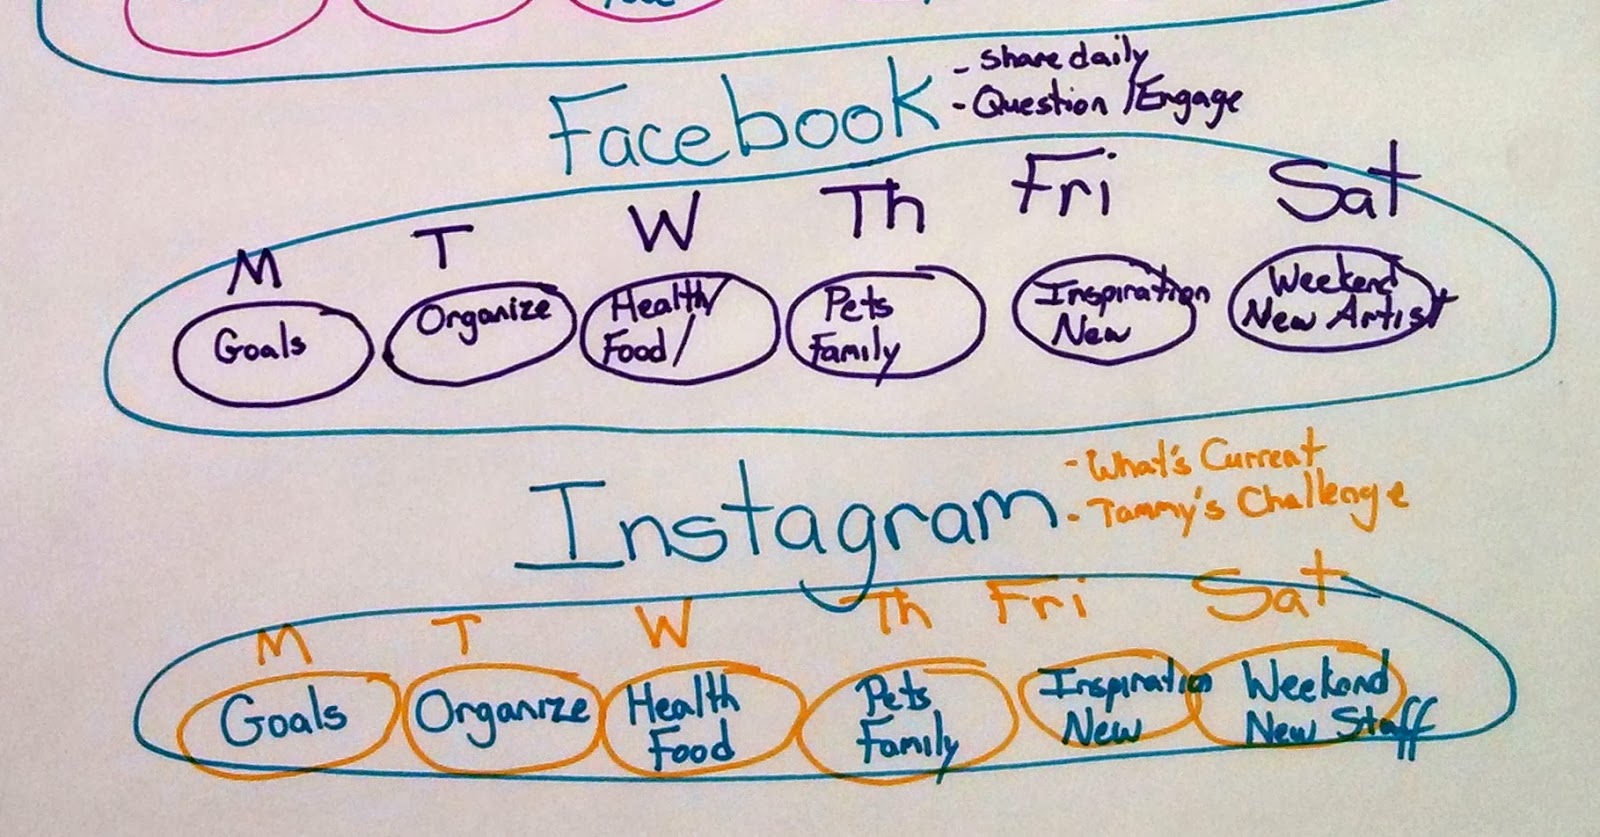 Facebook
- Share daily
- Question / Engage
M T W Th Fri Sat
Goals
Organize
Health/
Food/
Pets
Family
Inspiration
New
Weekend
New Artist
Instagram
- What's Current
- Tammy's Challenge
M T W Th Fri Sat
Goals
Organize
Health
Food
Pets
Family
Inspiration
New
Weekend
New Staff